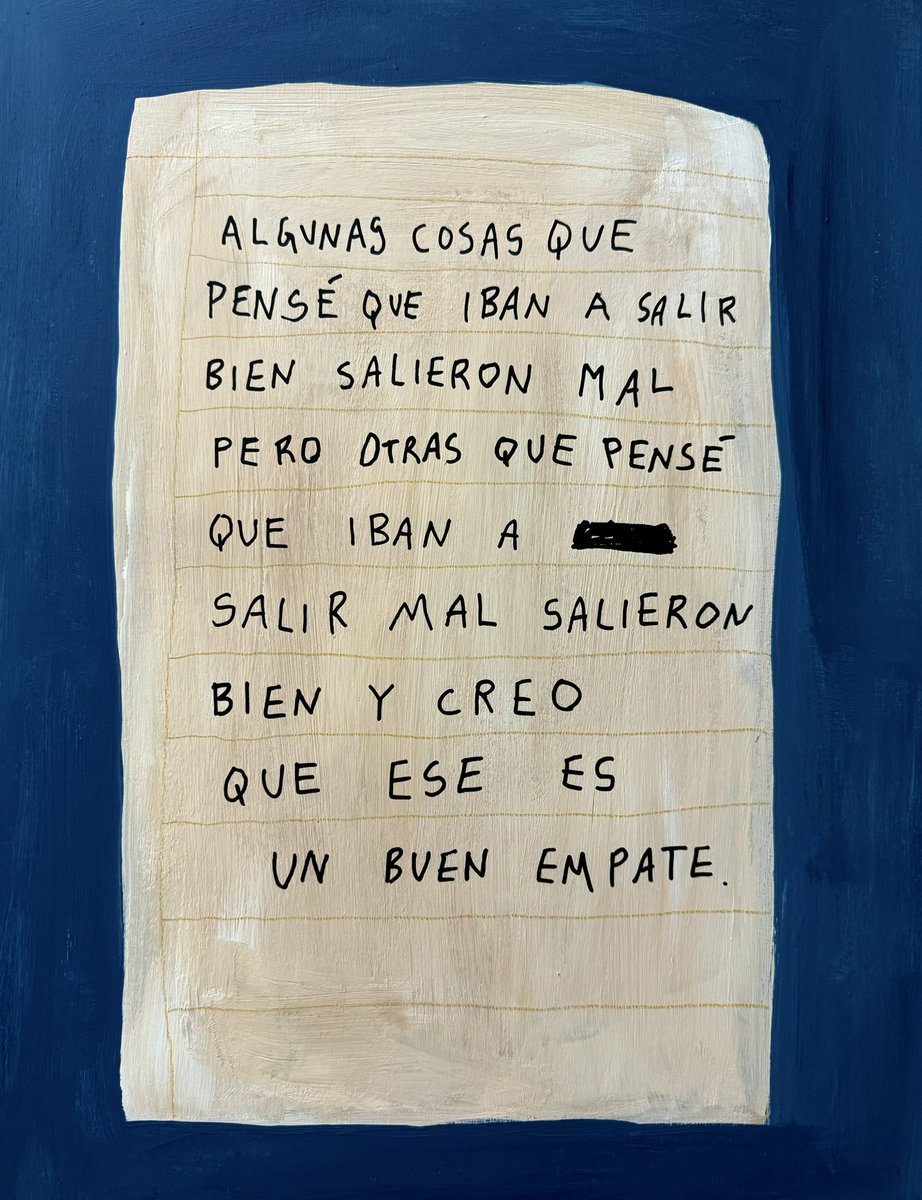 ALGUNAS COSAS QUE
PENSÉ QUE IBAN A SALIR
BIEN SALIERON MAL
PERO OTRAS QUE PENSÉ
QUE IBAN A
SALIR MAL SALIERON
BIEN Y CREO
QUE ESE ES
UN BUEN EMPATE.